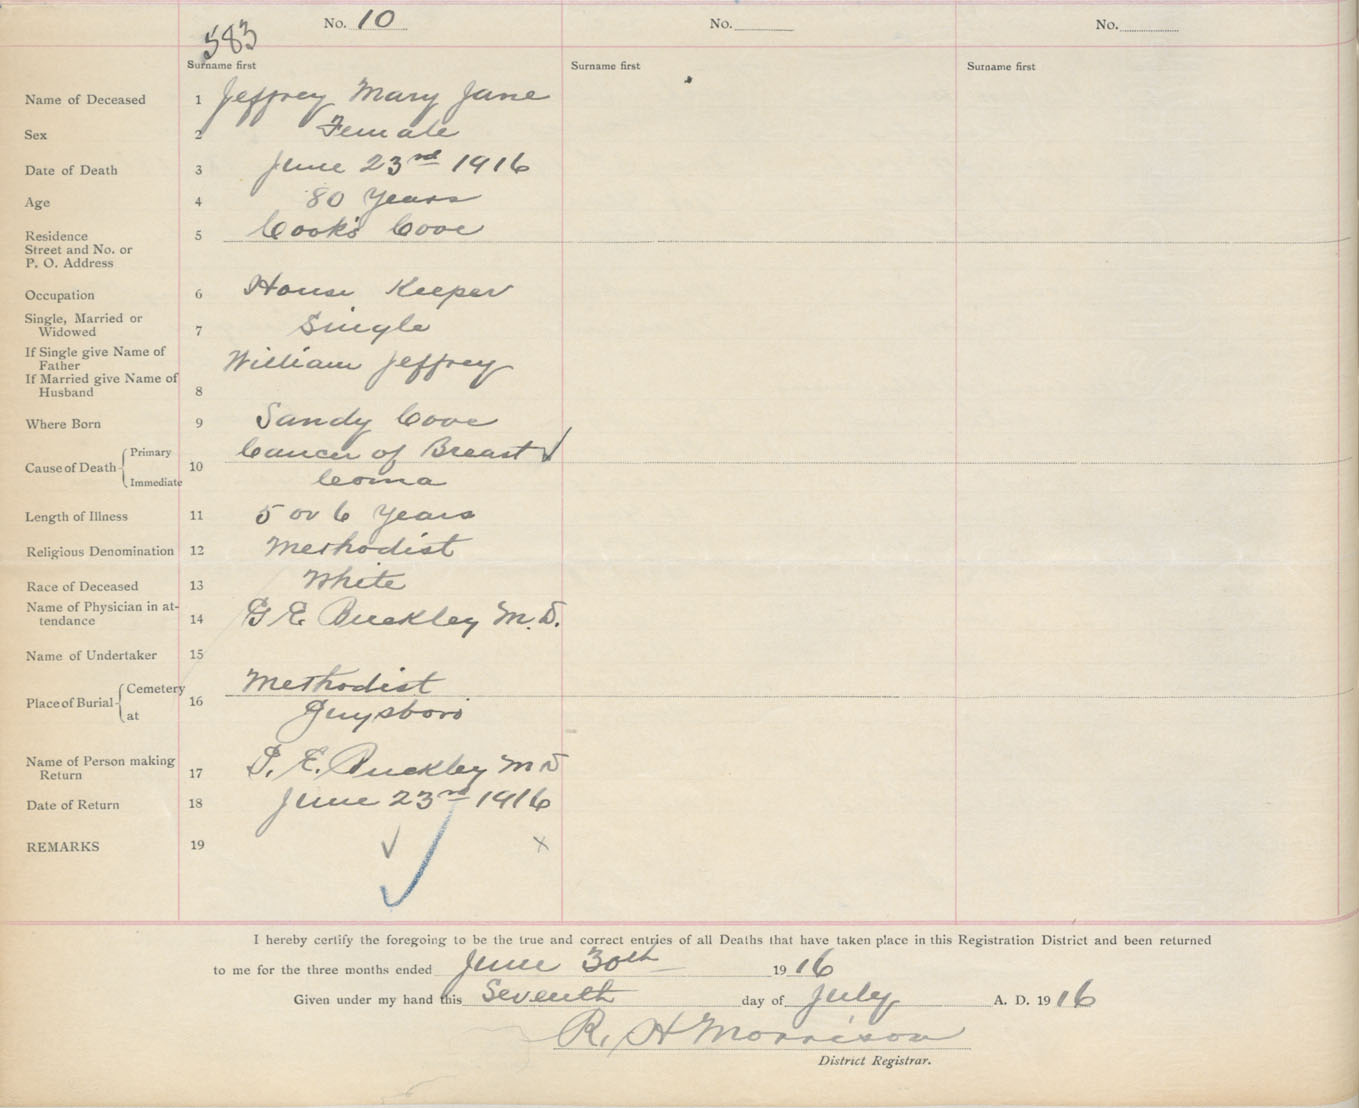 No. 10 No. No.
583
Surname first Surname first Surname first
Name of Deceased 1 Jeffrey Mary Jane
Sex 2 Female
Date of Death 3 June 23rd 1916
Age 4 80 Years
Residence 5 Cook's Cove
Street and No. or
P. O. Address
Occupation 6 House Keeper
Single, Married or
Widowed 7 Single
If Single give Name of
Father William Jeffrey
If Married give Name of
Husband 8
Where Born 9 Sandy Cove
Cause of Death 10 Primary Cancer of Breast
Immediate Coma
Length of Illness 11 5 or 6 Years
Religious Denomination 12 Methodist
Race of Deceased 13 White
Name of Physician in at-
tendance 14 G E. Buckley M.D.
Name of Undertaker 15
Place of Burial 16 Cemetery Methodist
at Guysboro
Name of Person making
Return 17 G. E. Buckley M D
Date of Return 18 June 23rd 1916
REMARKS 19
I hereby certify the foregoing to be the true and correct entries of all Deaths that have taken place in this Registration District and been returned
to me for the three months ended June 30th 1916
Given under my hand this Seventh day of July A. D. 1916
R. H Morrison
District Registrar.